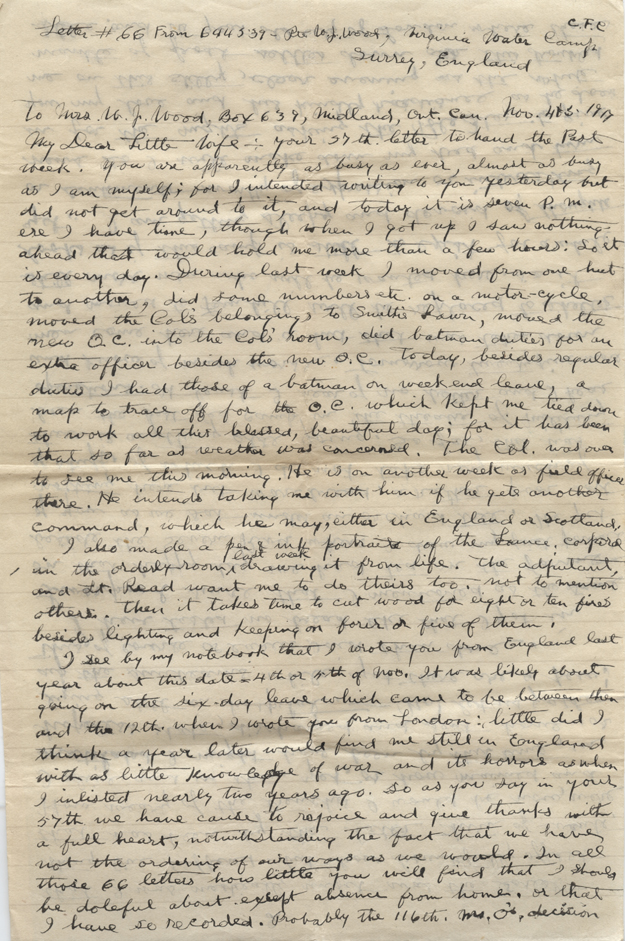 C.F.C
Letter # 66 From 644539 - Pte W.J. Wood, Virginia Water Camp,
Surrey, England
To Mrs. W. J. Wood, Box 639, Midland, Ont. Can. Nov. 4th. 1917
My Dear Little Wife :- your 57th. letter to hand the Past
week. You are apparently as busy as ever, almost as busy
as I am myself; for I intended writing to you yesterday but
did not get around to it, and today it is seven P. m.
ere I have time, though when I got up I saw nothing
ahead that would hold me more than a few hours: So it
is every day. During last week I moved from one hut
to another, did some numbers etc. on a motor-cycle,
moved the Col's belongings to Smith's Lawn, moved the
new O.C. into the Col's room, did batman duties for an
extra officer besides the new O.C. today, besides regular
duties I had those of a batman on weekend leave, a
map to trace off for the O.C. which kept me tied down
to work all this blessed, beautiful day; for it has been
that so far as weather was concerned. The Col. was over
to see me this morning. He is on another week as field officer
there. He intends taking me with him if he gets another
command, which he may, either in England or Scotland,
I also made a pen & ink portrait of the Lance, corporal
in the orderly-room, last week drawing it from life. The adjutant,
and Lt. Read want me to do theirs too. not to mention
others. Then it takes time to cut wood for eight or ten fires
besides lighting and keeping on four or five of them.
I see by my notebook that I wrote you from England last
year about this date - 4th or 5th of Nov. It was likely about
going on the six-day leave which came to be between then
and the 12th. when I wrote you from London: little did I
think a year later would find me still in England
with as little knowledge of war and its horrors as when
I inlisted nearly two years ago. So as you say in your
57th we have cause to rejoice and give thanks with
a full heart, notwithstanding the fact that we have
not the ordering of our ways as we would. In all
those 66 letters how little you will find that I should
be doleful about except absence from home. or that
I have so recorded. Probably the 116th. M.O's, decision